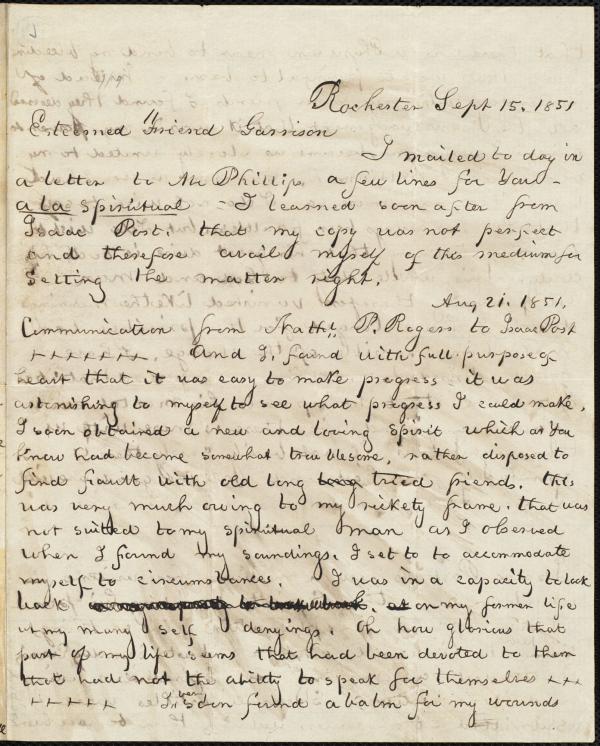 Rochester Sept 15. 1851
Esteemed Friend Garrison
I mailed to day in
a letter to Mr Phillips a few lines for You –
a la spiritual – I learned soon after from
Isaac Post. that my copy was not perfect
and therefore avail myself of this medium for
setting the matter right.
Aug 21. 1851.
Communication from Nathl. P. Rogers to Isaac Post
+++++++. And I, found with full purpose of
heart that it was easy to make progress it was
astonishing to myself to see what progress I could make,
I soon obtained a new and loving spirit which as You
know had become somewhat troublesome, rather disposed to
find fault with old long long tried friends. this
was very much owing to my rickety frame. that was
not suited to my spiritual man as I observed
when I found my soundings. I set to to accommodate
myself to circumstances. I was in a capacity to look
back on my former life
at my many self denyings. Oh how glorious that
part of my life seems that had been devoted to them
that had not the ability to speak for themselves +++
+++++ I, very soon found a balm for my wounds